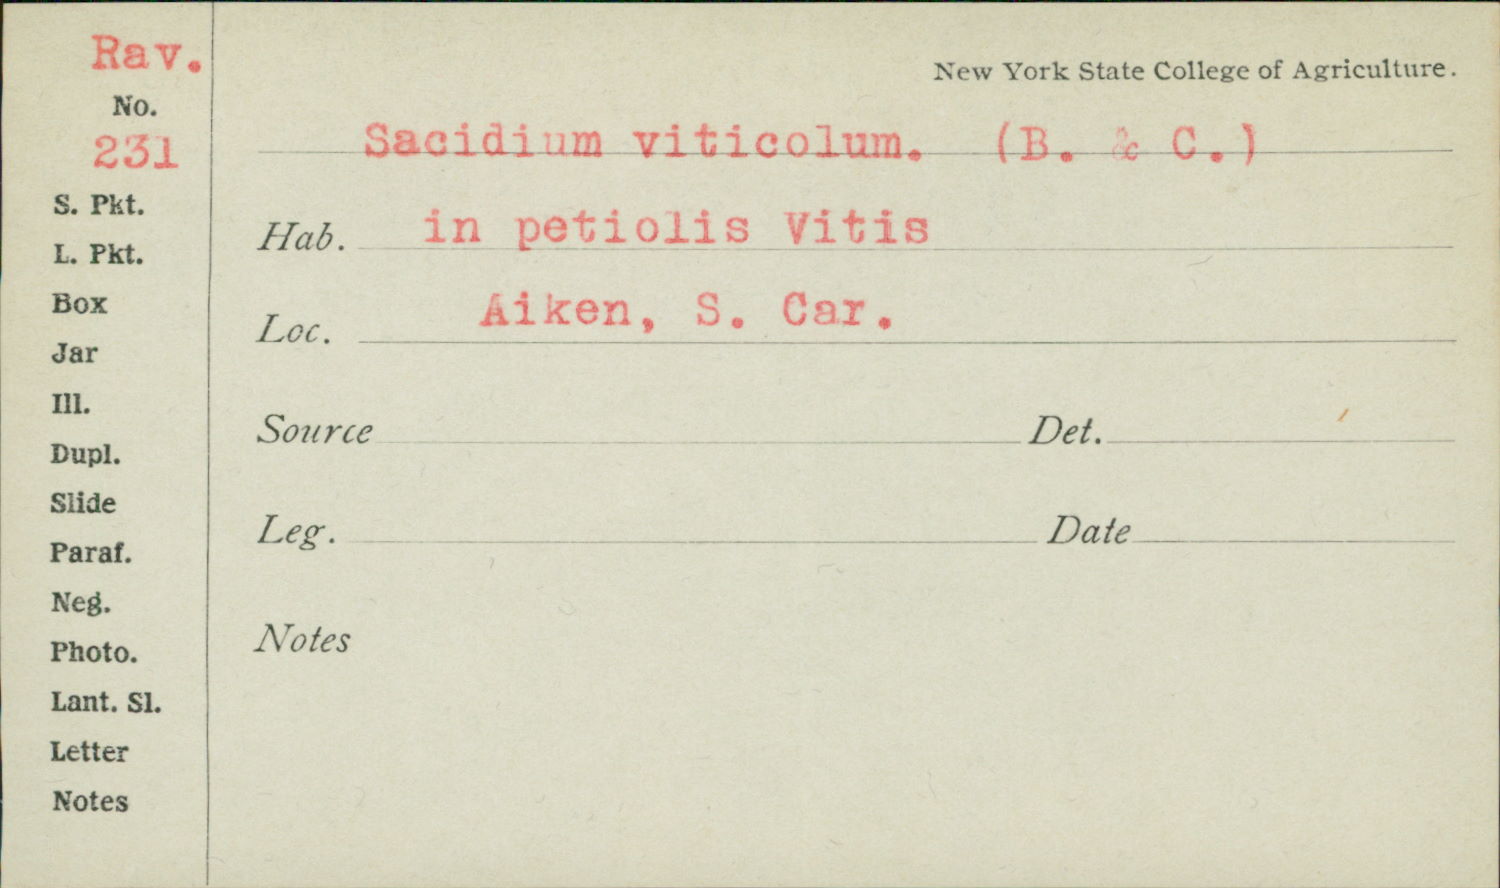 Rav.
No.
231
S. Pkt.
L. Pkt.
Box
Jar
Ill.
Dupl.
Slide
Paraf.
Neg.
Photo.
Lant. Sl.
Letter
Notes
New York State College of Agriculture.
Sacidium viticolum. (B. & C.)
Hab. in petiolis Vitis
Loc. Aiken, S. Car.
Source Det.
Leg. Date
Notes